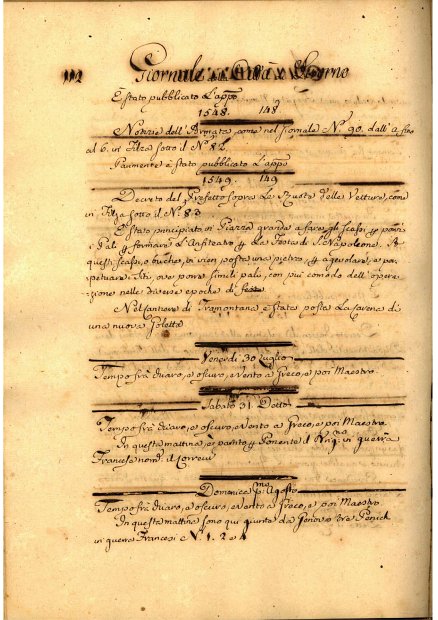 112 Giornale di Città di Livorno
È stato pubblicato L'appo
1548. 148
Notizie dell'Armata, come nel Giornale N.º 90. dall'
al 6. in Filza sotto il N.º 82.
Parimente è stato pubblicato L'appo
1549. 149
Decreto del Prefetto sopra Le Ruote delle Vetture, come
in Filza sotto il N.º 83
È stato principiato in Piazza grande a fare gli Scassi per porvi
i Pali per formare L'Anfiteatro per La Festa di S. Napoleone. A
questi scassi, o buche, vi vien posta una pietra, per agevolare, e per-
petuare i siti, ove porre simili pali, con più comodo dell'opera-
zione nelle diverse epoche di feste
Nel cantiere di Tramontana è stata posta La Carena di
una nuova Goletta
Venerdì 30 Luglio
Tempo frà chiaro, e oscuro, e Vento a Greco, e poi Maestro.
Sabato 31 Detto
Tempo frà chiaro, e oscuro, e Vento a Greco, e poi Maestro
In questa mattina, è partito per Ponente il Brig.no di guerra
Francese nom.º il
Domenica Pmo Agosto
Tempo frà chiaro, e oscuro, e Vento a Greco, e poi Maestro.
In questa mattina sono qui giunte da Genova tre Penich
in guerra Francesi N. 1. 2 e 4